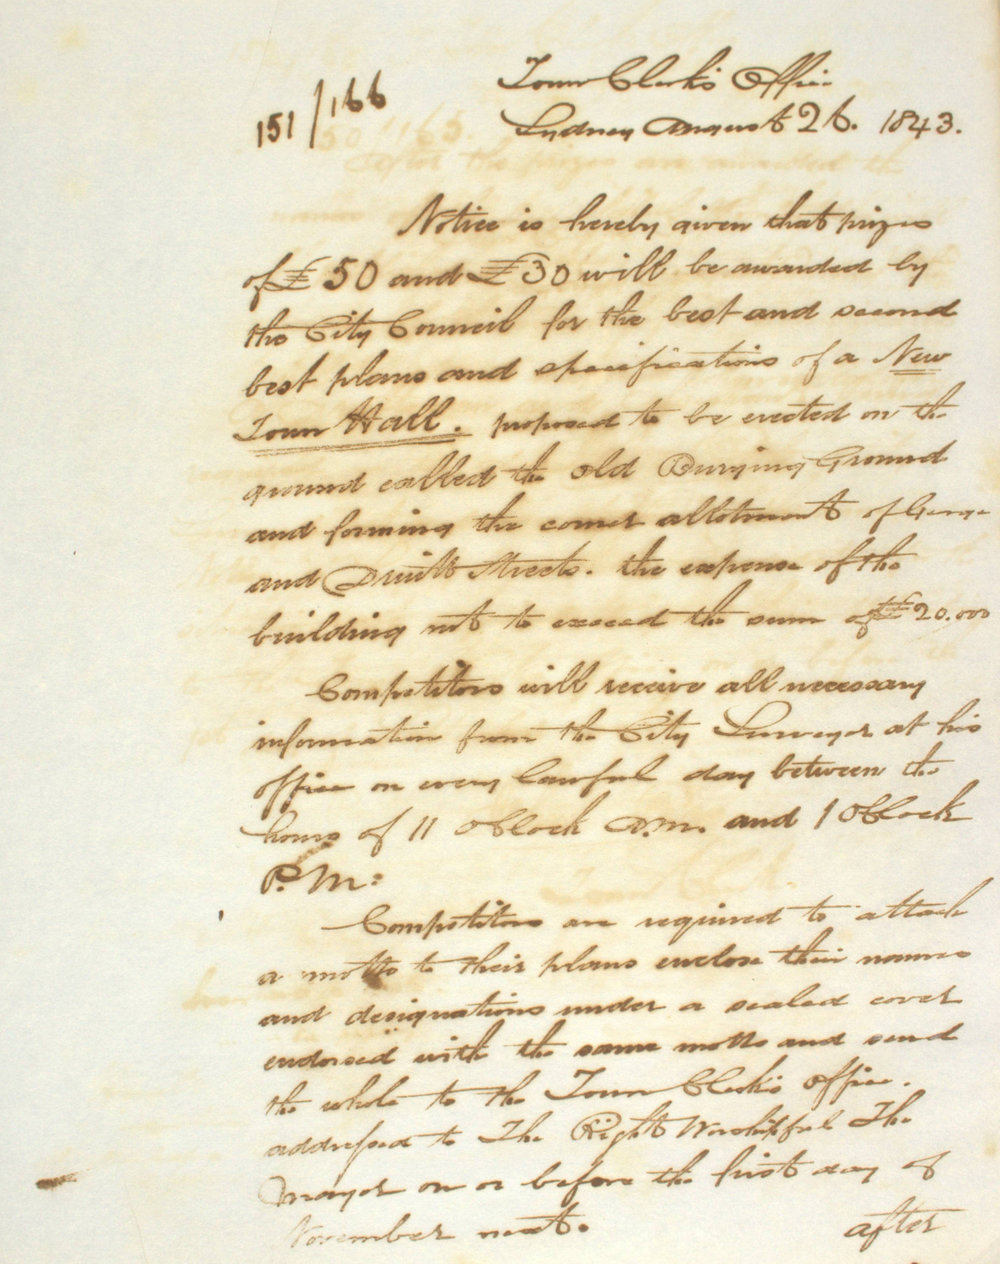 151/166
Town Clerk's Office
Sydney August 26. 1843.
Notice is hereby given that prizes
of £50 and £30 will be awarded by
the City Council for the best and second
best plans and specifications of a New
Town Hall. proposed to be erected on the
ground called the Old Burying Ground
and forming the corner allotment of George
and Druitt Streets. the expense of the
building not to exceed the sum of £20.000
Competitors will receive all necessary
information from the City Surveyor at his
office on every lawful day between the
hours of 11 oClock A.m. and 1 OClock
P.M:
Competitors are required to attach
a motto to their plans enclose their names
and designations under a sealed cover
endorsed with the same motto and send
the whole to the Town Clerk's Office.
addressed to The Right Worshipful The
Mayor on or before the first day of
November next.
after